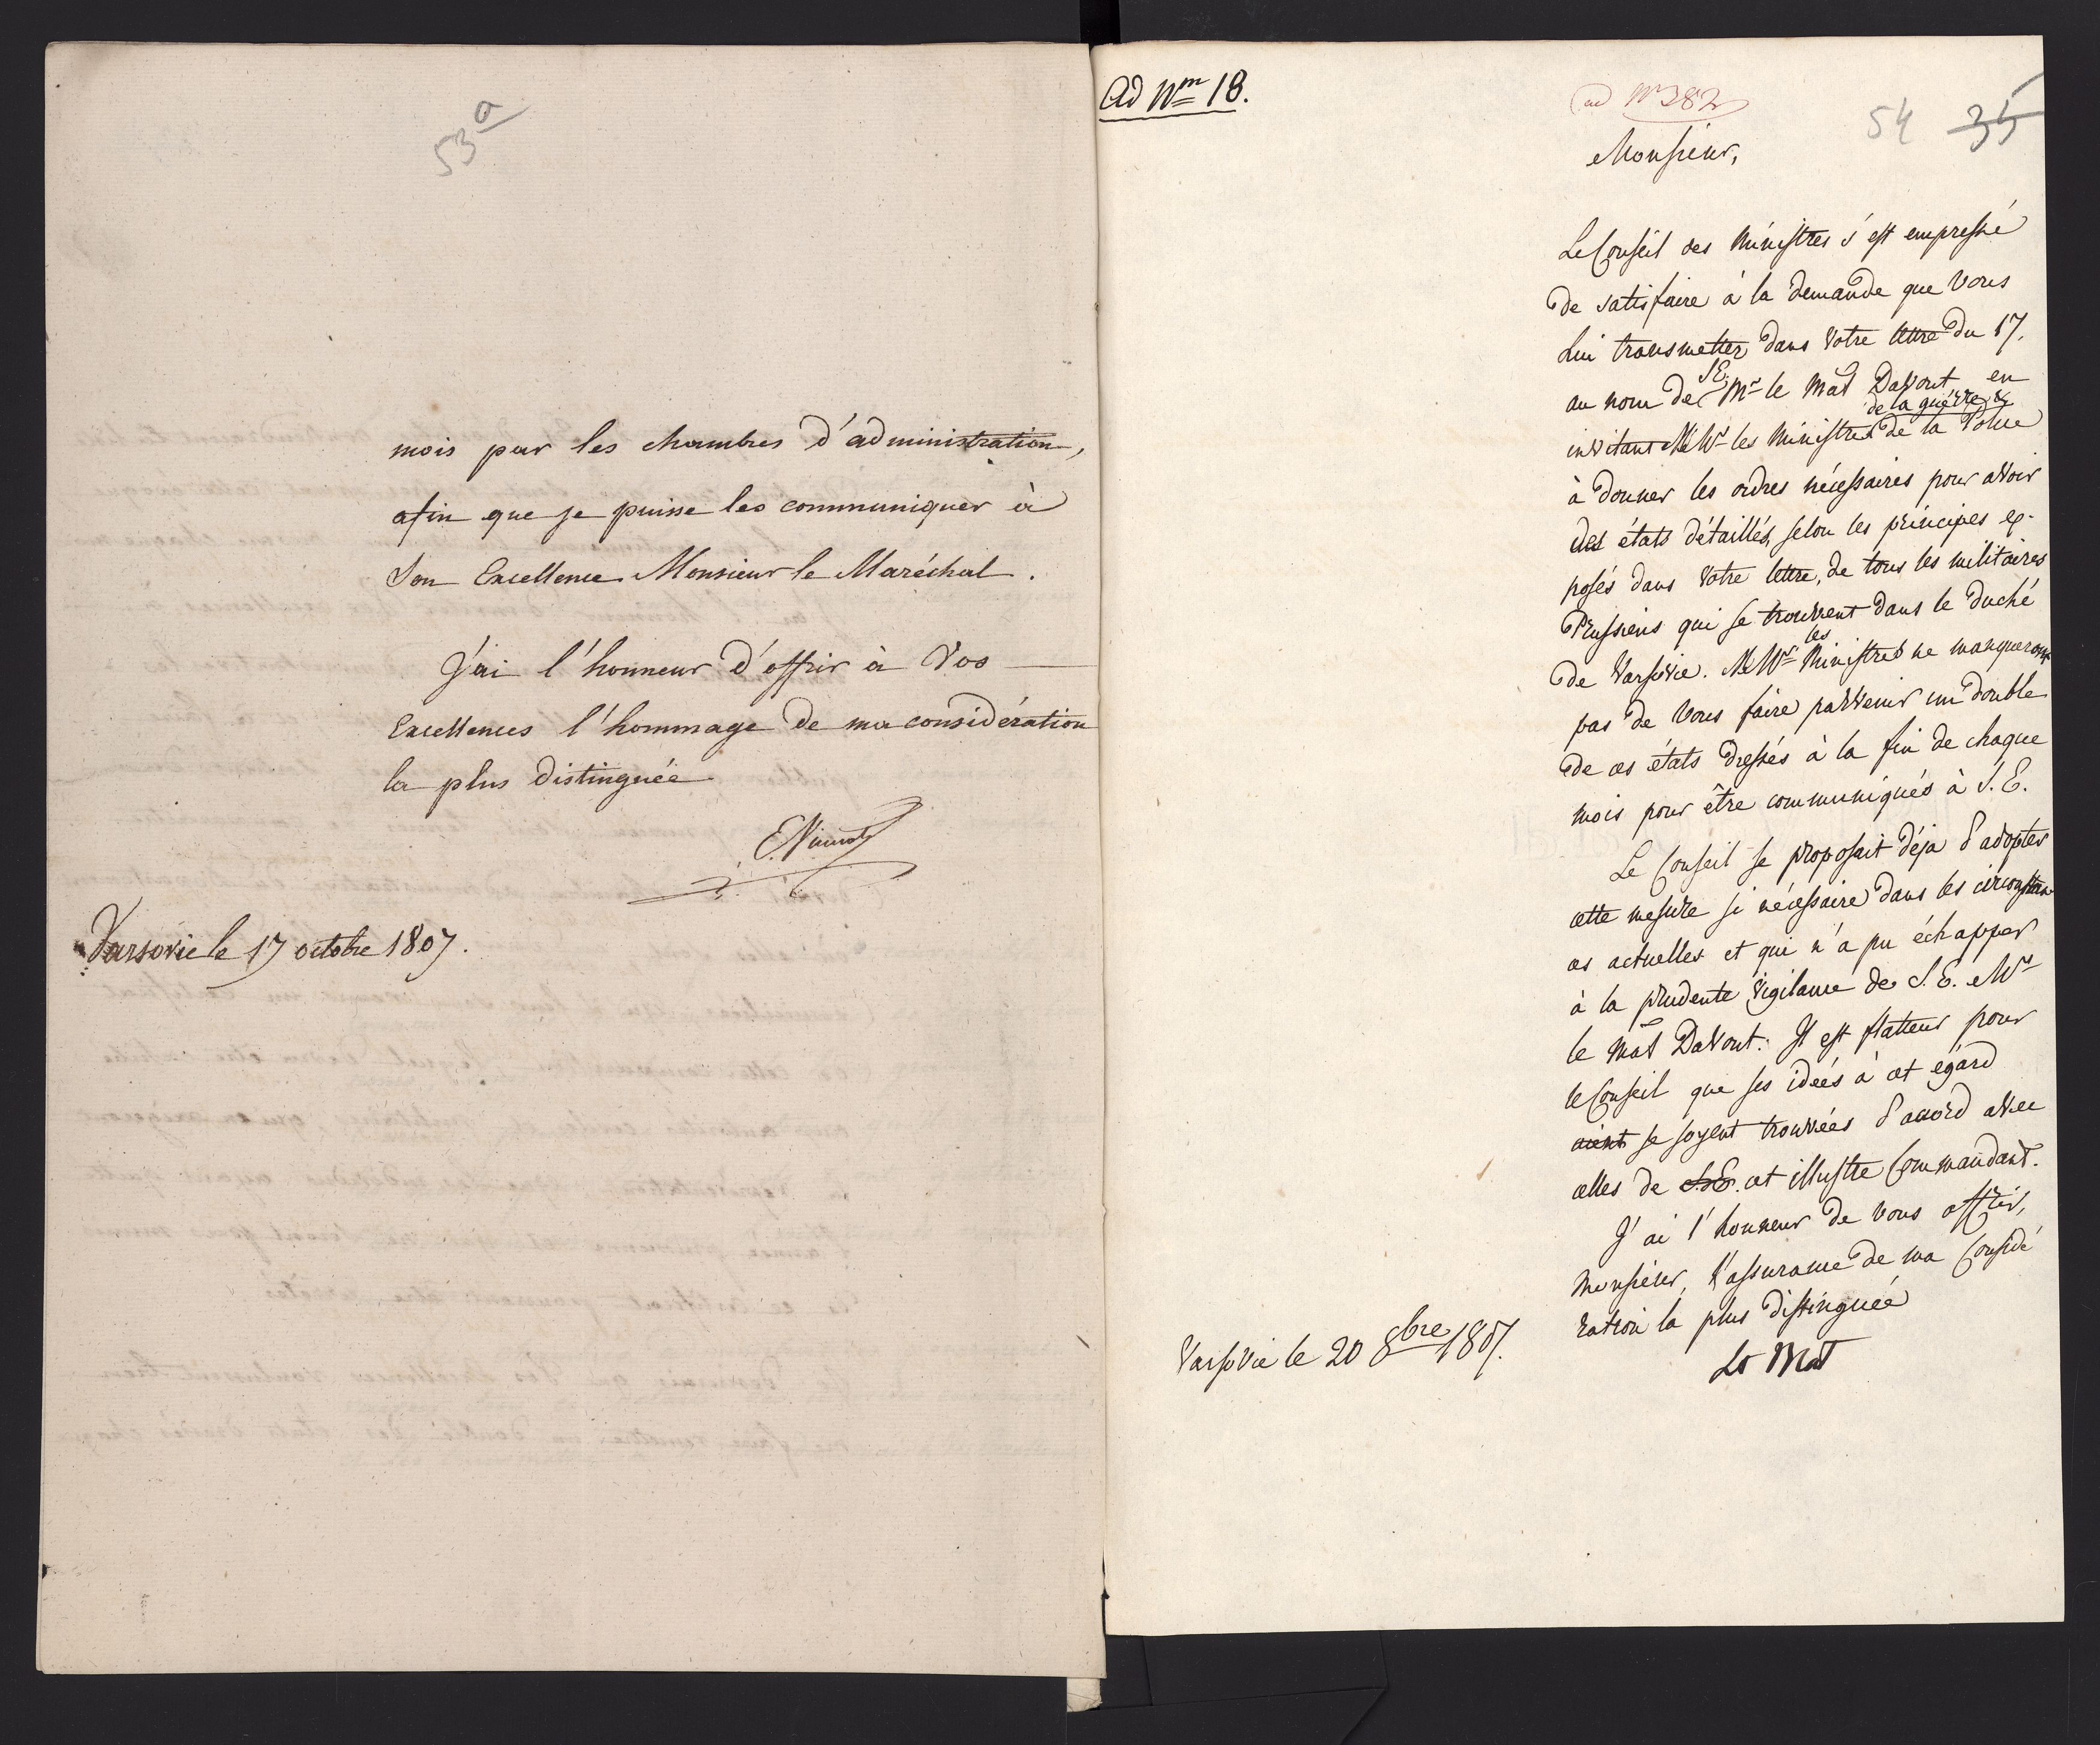 53a
mois par les chambres d'administration,
afin que je puisse les communiquer à
Son Excellence Monsieur le Maréchal.
J'ai l'honneur d'offrir à Vos
Excellences l'hommage de ma considération
la plus distinguée
Varsovie le 17 octobre 1807.
Ad Nm 18.
ad No 382
54 35
Monsieur,
Le Conseil des Ministres s'est empressé
de satisfaire à la demande que Vous
Lui transmettez dans Votre lettre du 17.
au nom de S E. Mr le Mal Davout en
de la guerre &
invitant MMrs les Ministres de la Police
à donner les ordres nécessaires pour avoir
des états détaillés, selon les principes ex-
posés dans Votre lettre, de tous les militaires
Prussiens qui se trouvent dans le Duché
de Varsovie. MMrs les Ministres ne manqueront
pas de Vous faire parvenir un double
de ces états dressés à la fin de chaque
mois pour être communiqués à S. E.
Le Conseil se proposait déja d'adopter
cette mesure si nécessaire dans les circonstan
ces actuelles et qui n'a pu échapper
à la prudente vigilance de S. E. Mr
le Mal Davout. Il est flatteur pour
le Conseil que ses idées à cet égard
aient se soyent trouvées d'accord avec
celles de S. E. cet illustre Commandant.
J'ai l'honneur de Vous offrir,
Monsieur, l'assurance de ma Considé
ration la plus distinguée
Varsovie le 20 8bre 1807.